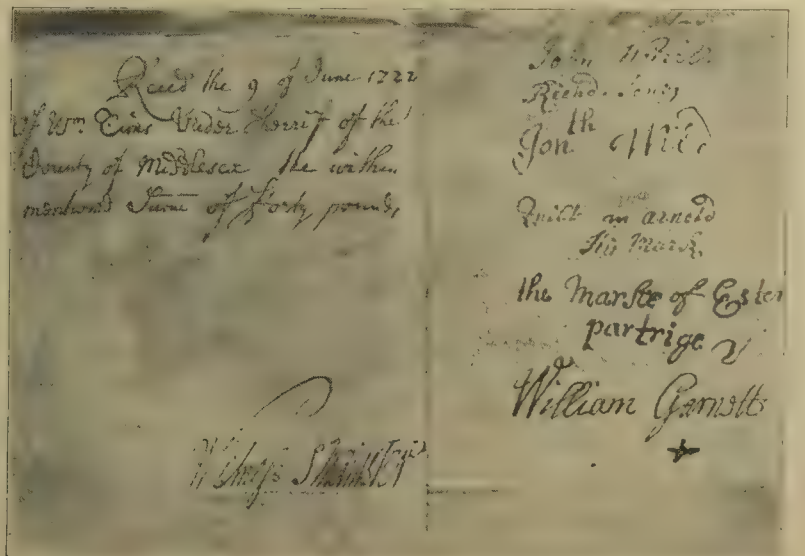 Rec'd the 9 of June 1722
of Wm. Tims Under Sherriff of the
County of Middlesex the within
mentioned Sume of forty pounds
John
Richd. Jones
Jonth Wild
Will m arnold
his Mark
the Marke of Ester
partrige
William Garnetts